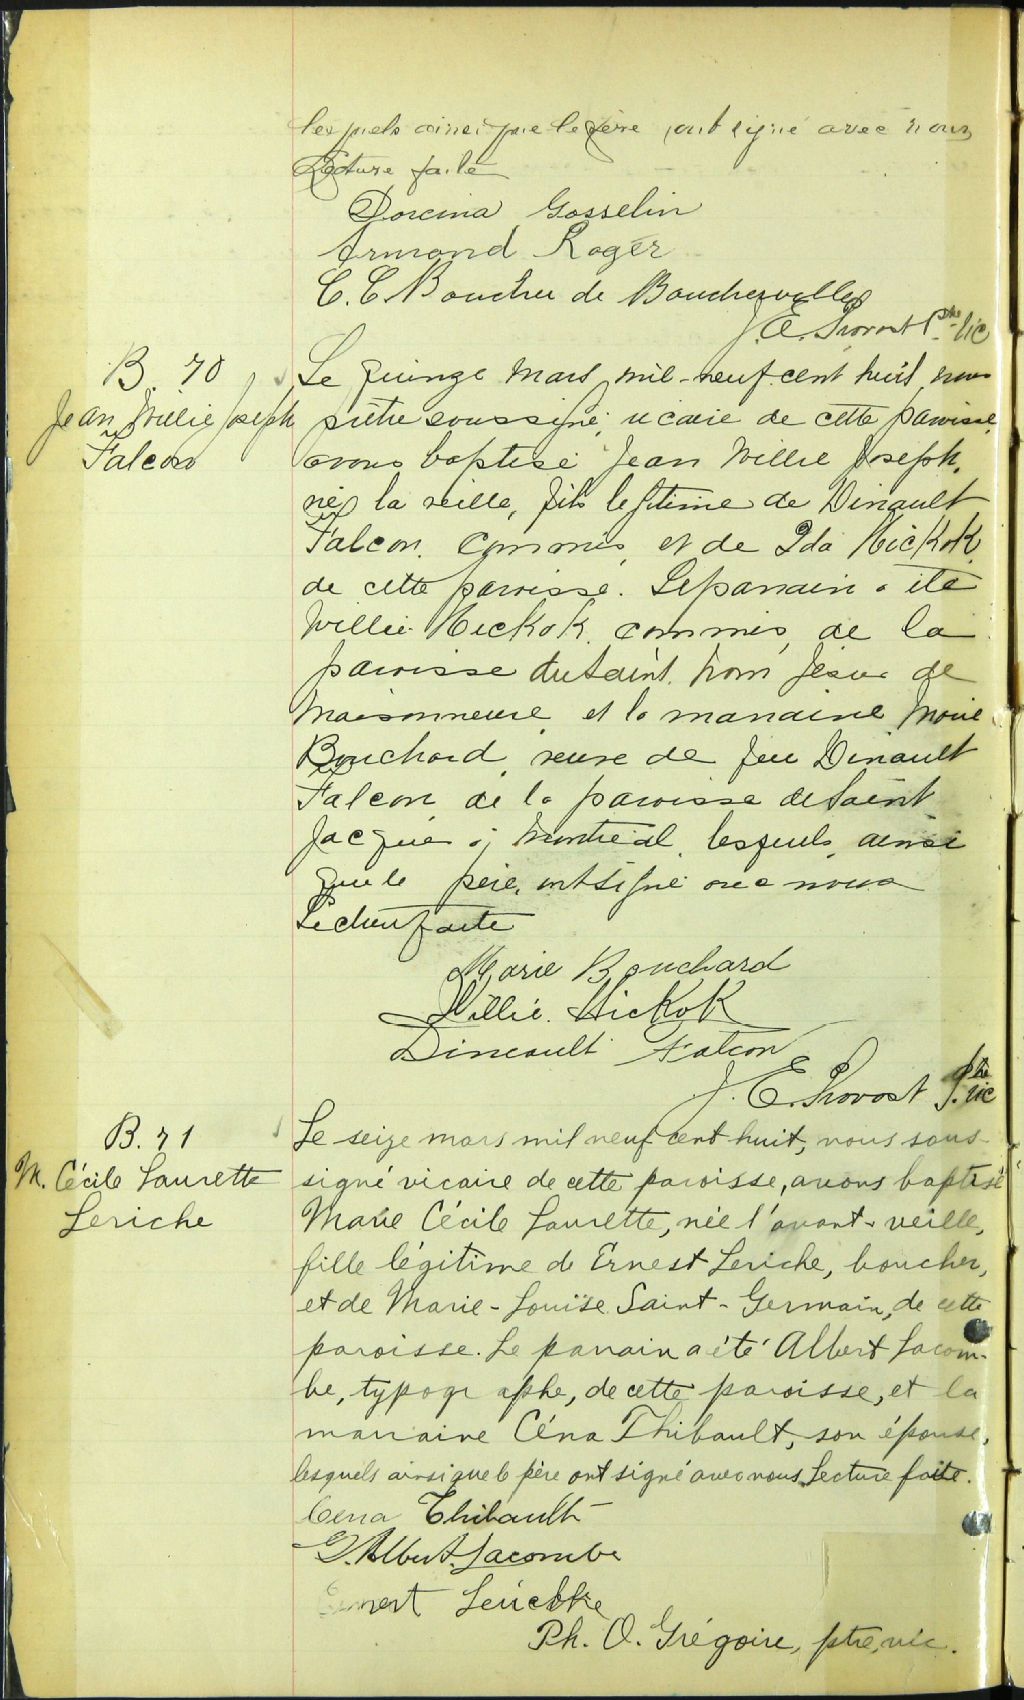 lesquels ainsi que le père, ont signé avec nous
Lecture faite
Dorcina Gosselin
Armand Roger
C. C. Boucher de Boucherville
J. E. Provost Ptre. Vic
B. 70
Jean Willie Joseph
Falcon
Le quinze Mars mil-neuf-cent huit nous
prêtre soussigné, vicaire de cette paroisse,
avons baptisé Jean Willie Joseph,
né la veille, fils légitime de Dinault
Falcon, commis, et de Ida Hickok
de cette paroisse. Le parrain a été
Willie Hickok, commis, de la
paroisse du Saint Nom Jésus de
Maisonneuve et la marraine Marie
Bouchard, veuve de feu Dinault
Falcon de la paroisse de Saint
Jacques à Montréal, lesquels, ainsi
que le père, ont signé avec nous
Lecture faite
Marie Bouchard
Willie Hickok
Dineault Falcon
J. E. Provost Ptre. Vic
B. 71
M. Cécile Laurette
Leriche
Le seize mars mil neuf cent huit, nous sous-
signé vicaire de cette paroisse, avons baptisé
Marie Cécile Laurette, née l'avant-veille,
fille légitime de Ernest Leriche, boucher,
et de Marie-Louise Saint-Germain, de cette
paroisse. Le parrain a été Albert Lacom-
be, typographe, de cette paroisse, et la
marraine Céna Thibault, son épouse,
lesquels ainsi que le père ont signé avec nous. Lecture faite.
Cena Thibault
G. Albert Lacombe
Ernest Leriche
Ph. O. Grégoire, ptre, vic.